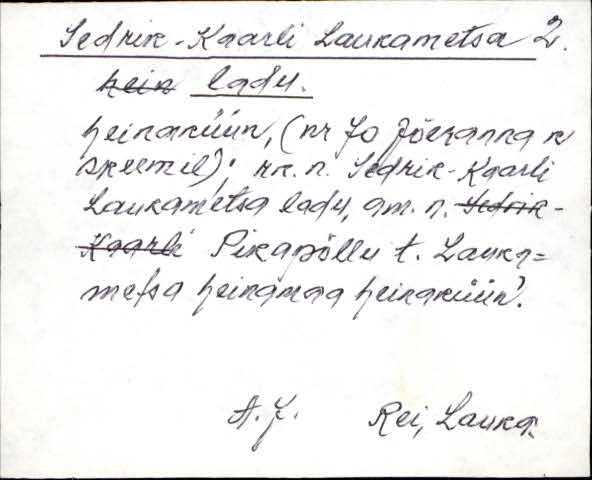 Sedrik-Kaarli Laukametsa 2.
hein ladu.
heinaküün, (nr 70 Jõeranna k
skeemil); rk. n. Sedrik-Kaarli
Laukametsa ladu, am. n. Sedrik-
Kaarli Pikapõllu t. Lauka=
metsa heinamaa heinaküün.
A. J. Rei, Lauka.